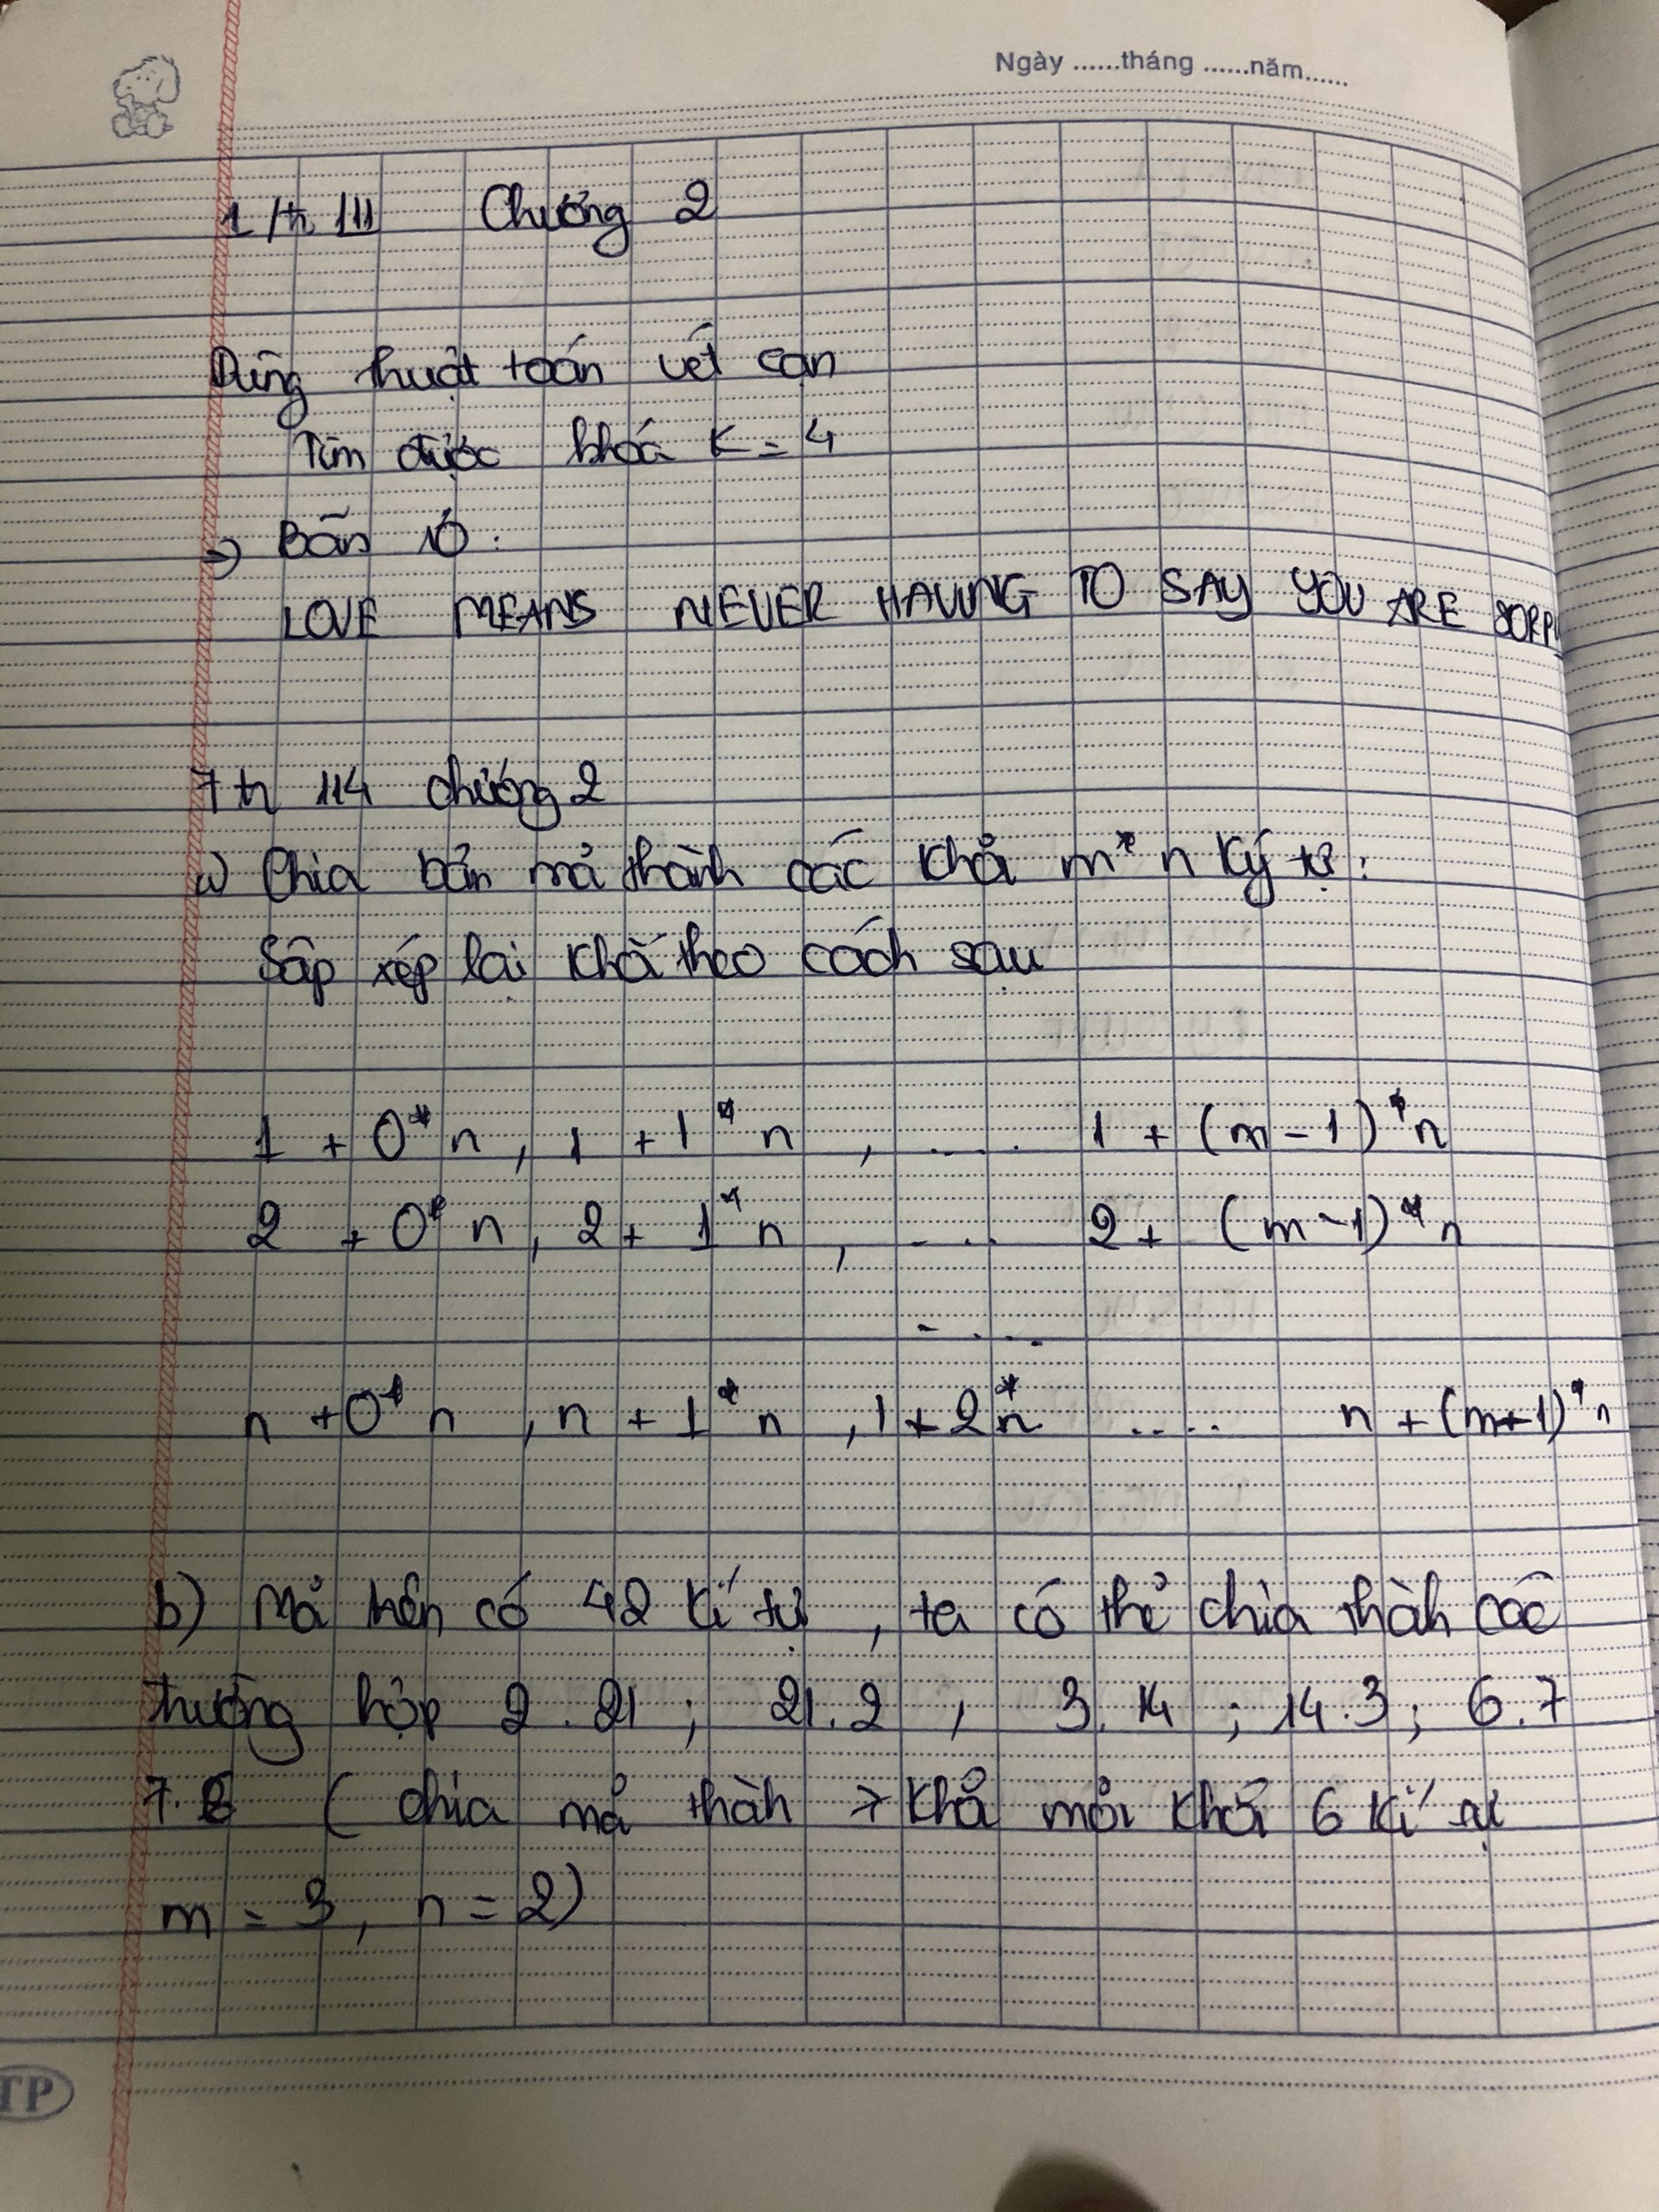 Ngày ......tháng ......năm......
1/tr 111 Chương 2
Dùng thuật toán vét cạn
Tìm được khoá K = 4
=> Bản rõ:
LOVE MEANS NEVER HAVING TO SAY YOU ARE SORRY
7 tr 114 chương 2
a) Chia bản mã thành các khối m * n ký tự:
Sắp xếp lại khối theo cách sau
1 + 0* n, 1 + 1 * n, .... 1 + (m - 1) * n
2 + 0* n, 2 + 1 * n, .... 2 + (m - 1) * n
- ...
n + 0* n, n + 1 * n, 1 + 2 * n .... n + (m+1) * n
b) Mã trên có 42 kí tự, ta có thể chia thành các
trường hợp 2.21; 21.2, 3.14; 14.3; 6.7
7.6 (chia mã thành 7 khối mỗi khối 6 kí tự
m = 3, n = 2)
TP